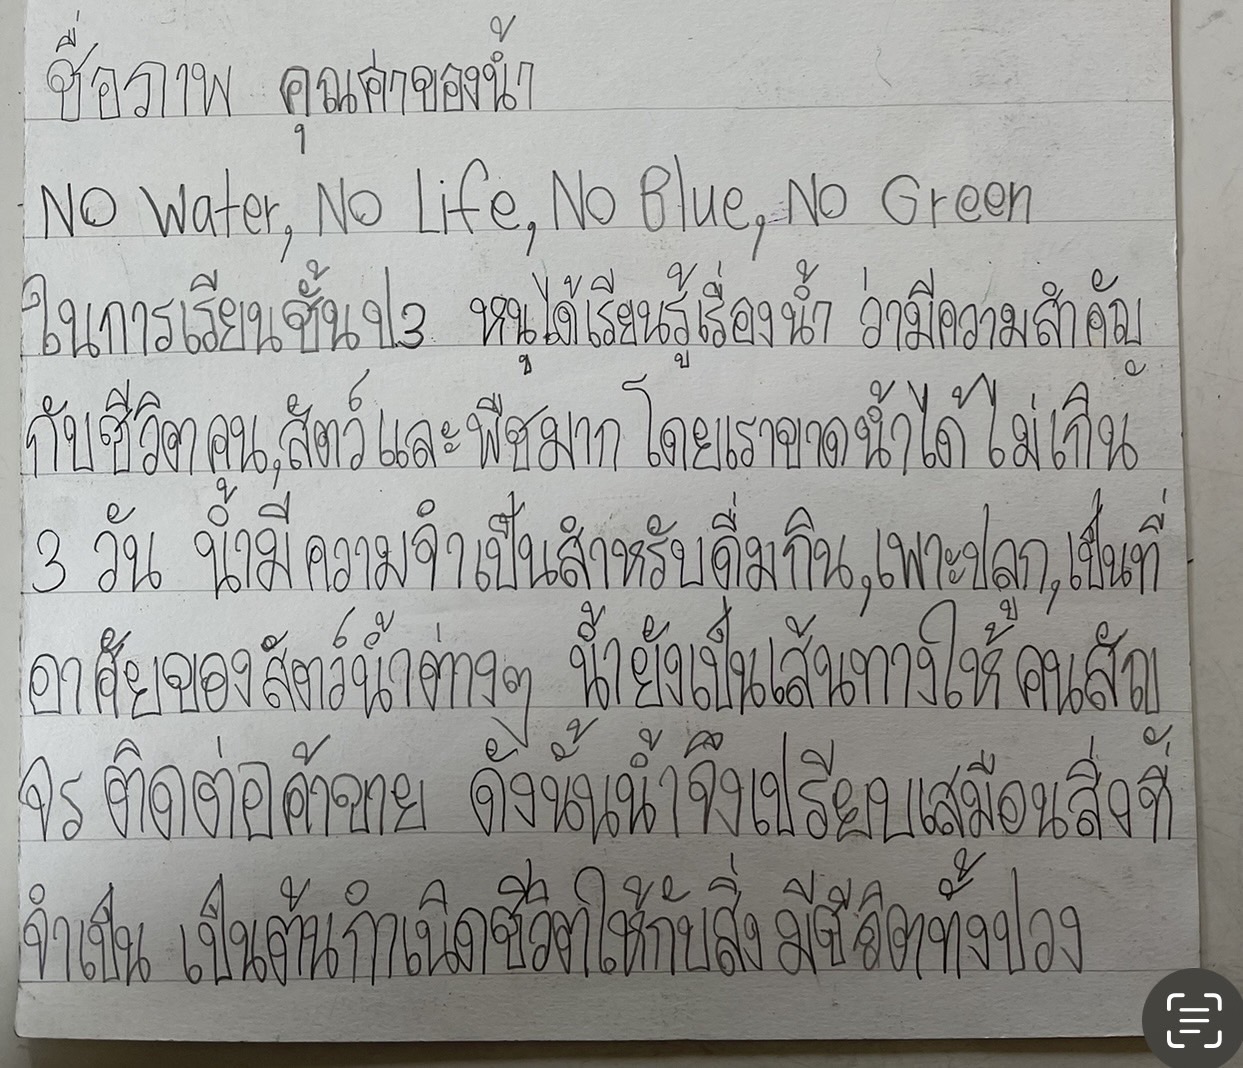 ชื่อภาพ คุณค่าของน้ำ
No Water, No Life, No Blue, No Green
ในการเรียนชั้นป3 หนูได้เรียนรู้เรื่องน้ำ ว่ามีความสำคัญ
กับชีวิตคน,สัตว์และพืชมาก โดยเราขาดน้ำได้ไม่เกิน
3 วัน น้ำมีความจำเป็นสำหรับดื่มกิน,เพาะปลูก,เป็นที่
อาศัยของสัตว์น้ำต่างๆ น้ำยังเป็นเส้นทางให้คนสัญ
จร ติดต่อค้าขาย ดังนั้นน้ำจึงเปรียบเสมือนสิ่งที่
จำเป็น เป็นต้นกำเนิดชีวิตให้กับสิ่งมีชีวิตทั้งปวง